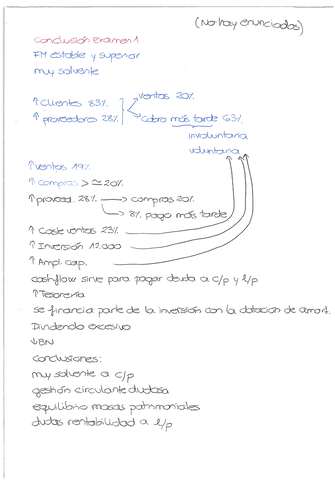 (No hay enunciados)
Conclusión examen 1
FM estable y superior
muy solvente
↑ Clientes 83% ventas 20%
↑ proveedores 28% Cobro más tarde 63%
involuntaria
voluntaria
↑ ventas 19%
↑ compras > ≃ 20%
↑ proveed. 28% → compras 20%
→ 8% pago más tarde
↑ Coste ventas 23%
↑ Inversión 12.000
↑ Ampl. cap.
cashflow sirve para pagar deuda a c/p y l/p
↑ Tesorería
se financia parte de la inversión con la dotación de amort.
Dividendo excesivo
↓ BN
Conclusiones:
muy solvente a c/p
gestión circulante dudosa
equilibrio masas patrimoniales
dudas rentabilidad a l/p